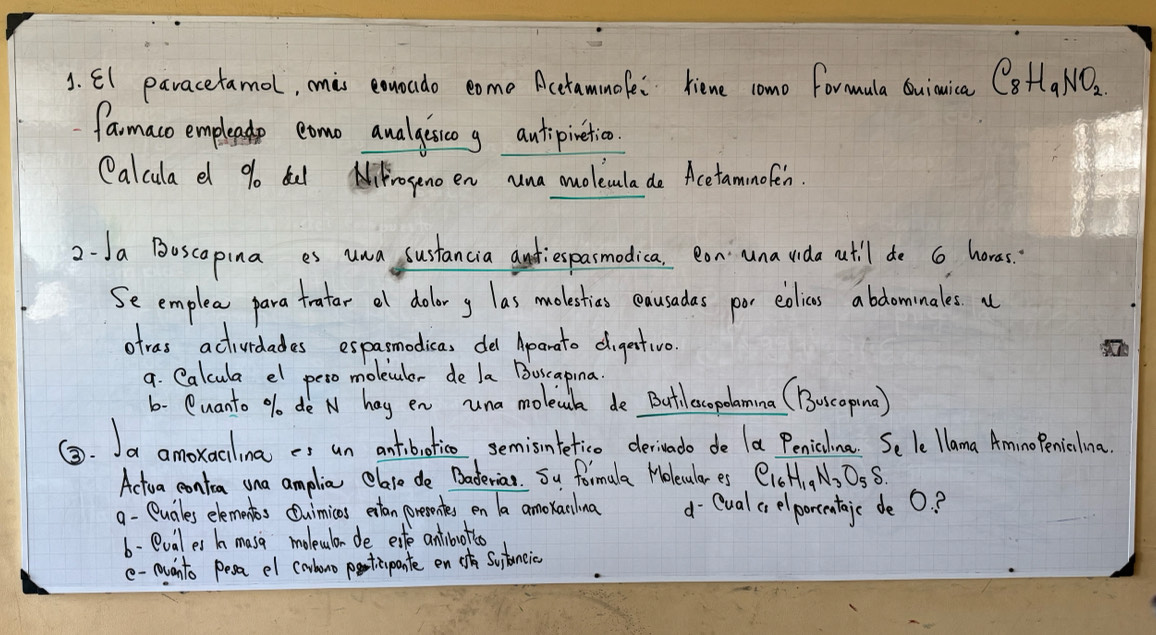 1. El paracetamol, más conocido como Acetaminofén tiene como formula Quimica C8H9NO2.
- farmaco empleado como analgésico y antipirético.
Calcula el % del Nitrogeno en una molécula de Acetaminofén.
2- La Buscapina es una sustancia antiespasmodica, con una vida util de 6 horas.
Se emplea para tratar el dolor y las molestias causadas por cólicos abdominales u
otras actividades espasmodicas del Aparato digestivo.
a. Calcula el peso molécular de la Buscapina.
b- Cuanto % de N hay en una molecula de Butilescopolamina (Buscapina)
3- La amoxacilina es un antibiotico semisintetico derivado de la Penicilina. Se le llama AminoPenicilina.
Actua contra una amplia clase de Bacterias. Su formula Molecular es C16H19N3O5S.
a- Cuáles elementos Quimicos estan presentes en la amoxacilina
d- Cual es el porcentaje de O.?
b- Cuál es la masa molecular de este antibiotico
c- cuánto pesa el carbono participante en esta Sustancia